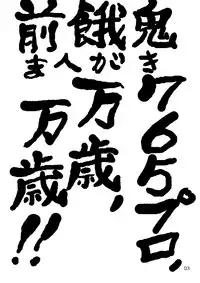 鬼き765プロ、
餓が人万歳、
前ま万歳!!
03